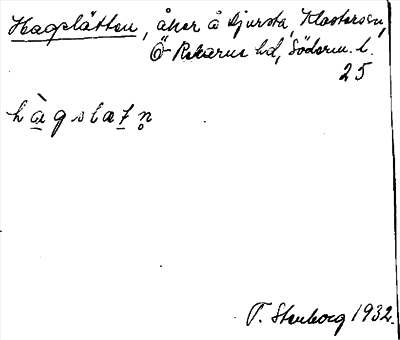 Hagslätten, åker å Djursta, Klosters sn,
Ö Rekarne hd, Söderm. l.
25
hàgslætn̥
T. Stenborg 1932.